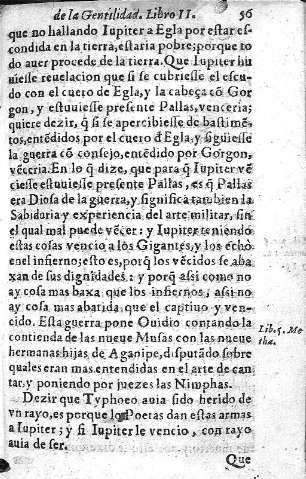 de la Gentilidad. Libro II. 56
que no hallando Iupiter a Egla por estar es-
condida en la tierra, estaria pobre; porque to
do auer procede de la tierra. Que Iupiter hu
uiesse reuelacion que si se cubriesse el escu-
do con el cuero de Egla, y la cabeça cō Gor
gon, y estuuiesse presente Pallas, venceria;
quiere dezir, q̄ si se apercibiesse de bastimē-
tos, entēdidos por el cuero d̄ Egla, y siguiesse
la guerra cō consejo, entēdido por Gorgon,
vēceria. En lo q̄ dize, que para q̄ Iupiter vē
ciesse estuuiesse presente Pallas, es q̄ Pallas
era Diosa de la guerra, y significa tambien la
Sabiduria y experiencia del arte militar, sin
el qual mal puede vēcer: y Iupiter teniendo
estas cosas vencio a lòs Gigantes, y los echò
en el infierno; esto es, porq̄ los vēcidos se aba
xan de sus dignidades: y porq̄ assi como no
ay cosa mas baxa que los infiernos, assi no
ay cosa mas abatida que el captiuo y ven-
cido. Esta guerra pone Ouidio contando la
contienda de las nueue Musas con las nueue
hermanas hijas de Aganipe, disputādo sobre
quales eran mas entendidas en el arte de can
tar, y poniendo por juezes las Nimphas.
Lib. 5. Me
tha.
Dezir que Typhoeo auia sido herido de
vn rayo, es porque los Poetas dan estas armas
a Iupiter; y si Iupiter le vencio, con rayo
auia de ser.
Que